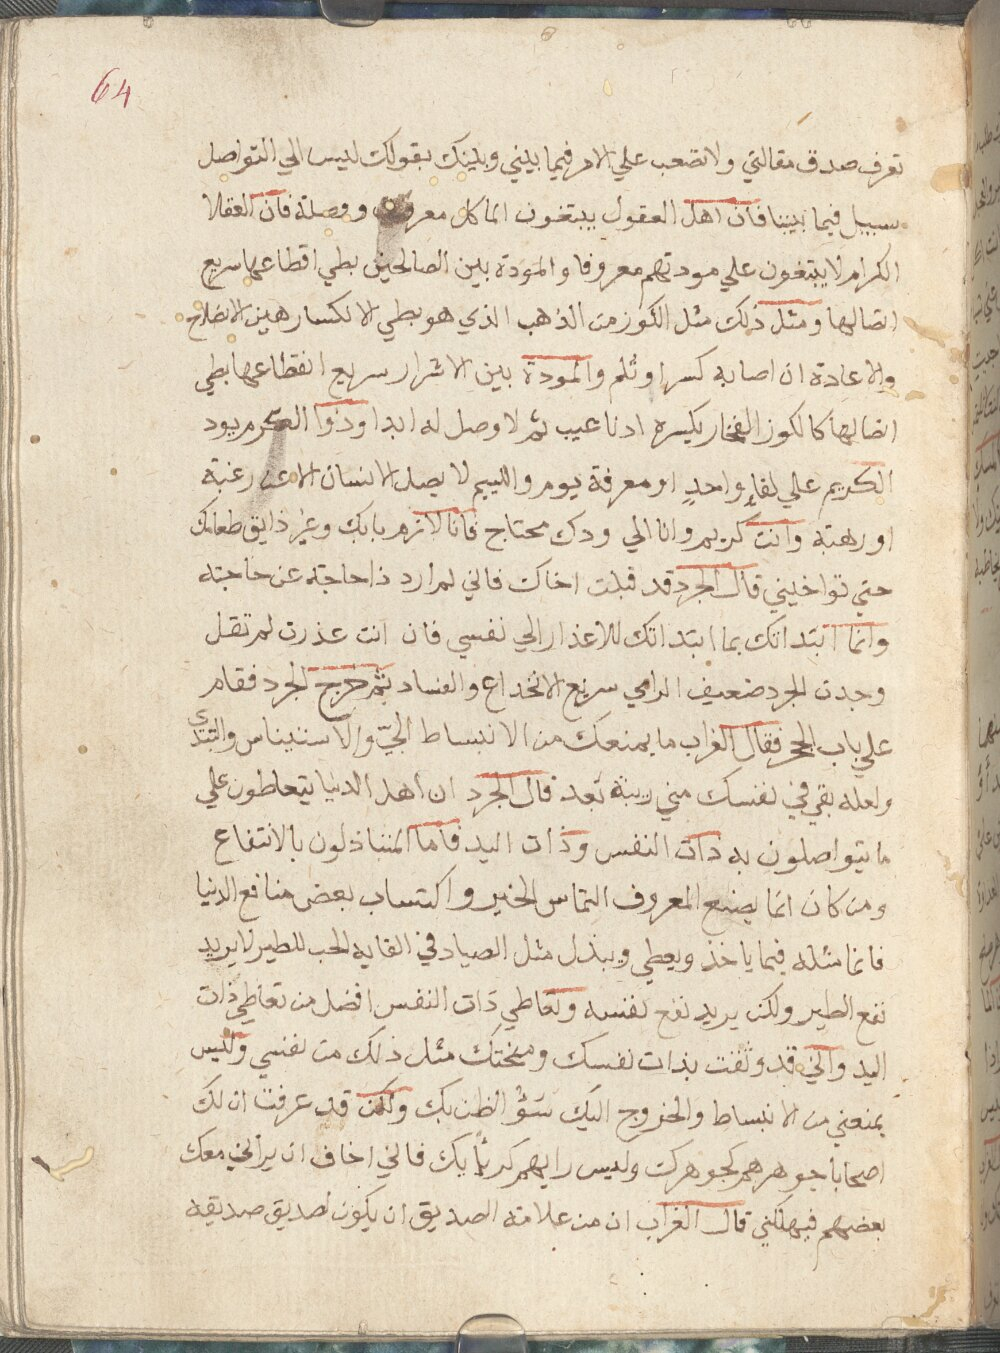 64
تعرف صدق مقالتي ولا تصعب علي الامر فيما بيني وبينك بقولك ليس الي التواصل
سبيل فيما بيننا فان اهل العقول يبتغون الي كل معروف ووصلة فان العقلا
الكرام لا يبتغون علي مودتهم معروفا والمودة بين الصالحين بطي اقطاعها سريع
اتصالها ومثل ذلك مثل الكوز من الذهب الذي هو بطي الانكسار هين الاصلاح
والاعادة ان اصابه كسر او ثلم والمودة بين الاشرار سريع انقطاعها بطي
اتصالها كالكوز الفخار يكسره ادنا عيب ثم لا وصل له ابدا وذوا الكرم يود
الكريم علي لقاءٍ واحدٍ او معرفة يوم واللييم لا يصل الانسان الا عن رغبة
او رهبة وانت كريم وانا الي ودك محتاج فانا لازم بابك وغير ذايق طعامك
حتي تواخيني قال الجرد قد قبلت اخاك فاني لم ارد ذا حاجة عن حاجته
وانما ابتداتك بما ابتداتك للاعذار الي نفسي فان انت عذرت لم تقل
وجدت الجرد ضعيف الراي سريع الانخداع والفساد ثم خرج الجرد فقام
علي باب الجحر فقال الغراب ما يمنعك من الانبساط اليّ والاستيناس والتبدي
ولعله بقي في نفسك مني ريبة بعد قال الجرد ان اهل الدنيا يتعاطون علي
ما يتواصلون به ذات النفس وذات اليد فاما المتباذلون بالانتفاع
ومن كان انما يصنع المعروف التماس الخير واكتساب بعض منافع الدنيا
فانما مثله فيما ياخذ ويعطي ويبذل مثل الصياد في القايه الحب للطير لا يريد
نفع الطير ولكن يريد نفع نفسه وتعاطي ذات النفس افضل من تعاطي ذات
اليد واني قد وثقت بذات نفسك ومنحتك مثل ذلك من نفسي وليس
يمنعني من الانبساط والخروج اليك سوُ الظن بك ولكن قد عرفت ان لك
اصحابا جوهرهم كجوهرك وليس رايهم كرأيك فاني اخاف ان يراني معك
بعضهم فيهلكني قال الغراب ان من علامة الصديق ان يكون لصديق صديقه